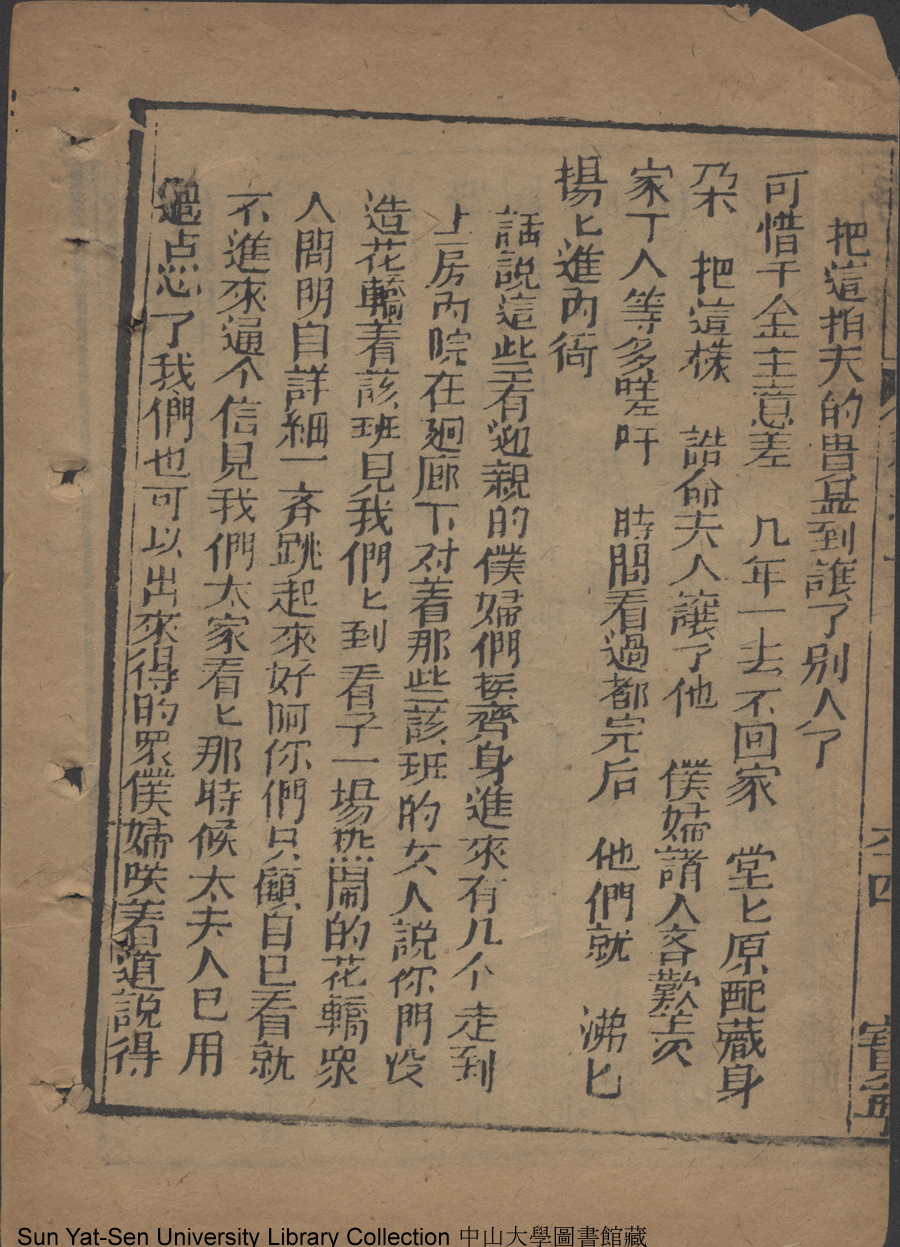 把這拍天的貴盆到讓了别人了
可惜千金主意差 几年一去不回家 堂匕原配藏身
朶 把這様 誥命夫人讓了他 僕婦諸人各歎羡
家丁人等多嗟吁 時間看過都完后 他們就 沸匕
揚匕進内衙
話說這些有迎親的僕婦們挨齊身進來有几个走到
上房内院在廻廊下对着那些該班的女人說你門没
造花轎着該班見我們匕到看子一場熱鬧的花轎衆
人問明自詳細一齐跳起來好阿你們只顧自已看就
不進來通个信見我們大家看匕那時候太夫人已用
過点心了我們也可以出來得的衆僕婦咲着道說得
六四
寳盆
Sun Yat-Sen University Library Collection 中山大學圖書館藏